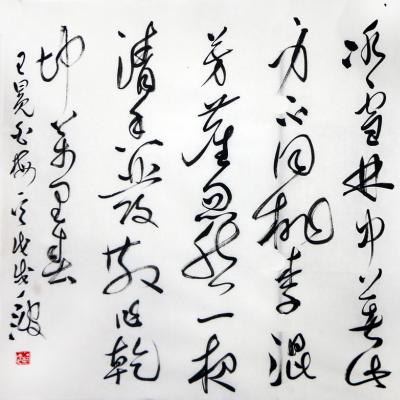 冰雪林中著此
身不同桃李混
芳塵忽然一夜
清香發散作乾
坤萬里春
王冕白梅